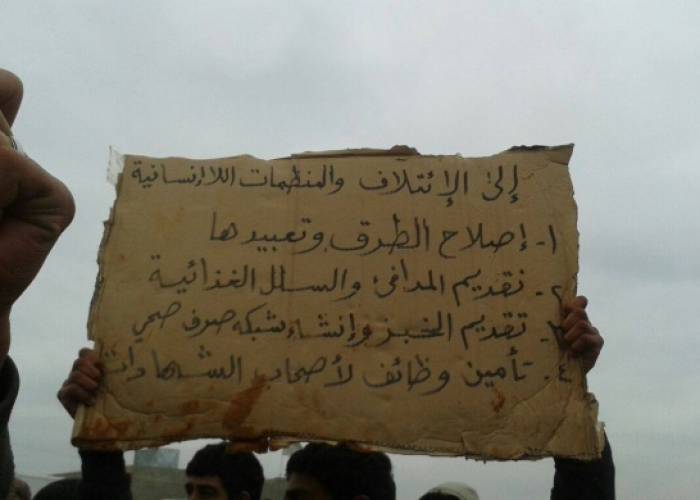 إلى الإئتلاف والمنظمات اللاإنسانية
١- إصلاح الطرق وتعبيدها
٢- تقديم المدافئ والسلل الغذائية
٣- تقديم الخبز وإنشاء شبكه صرف صحي
٤- تأمين وظائف لأصحاب الشهادات